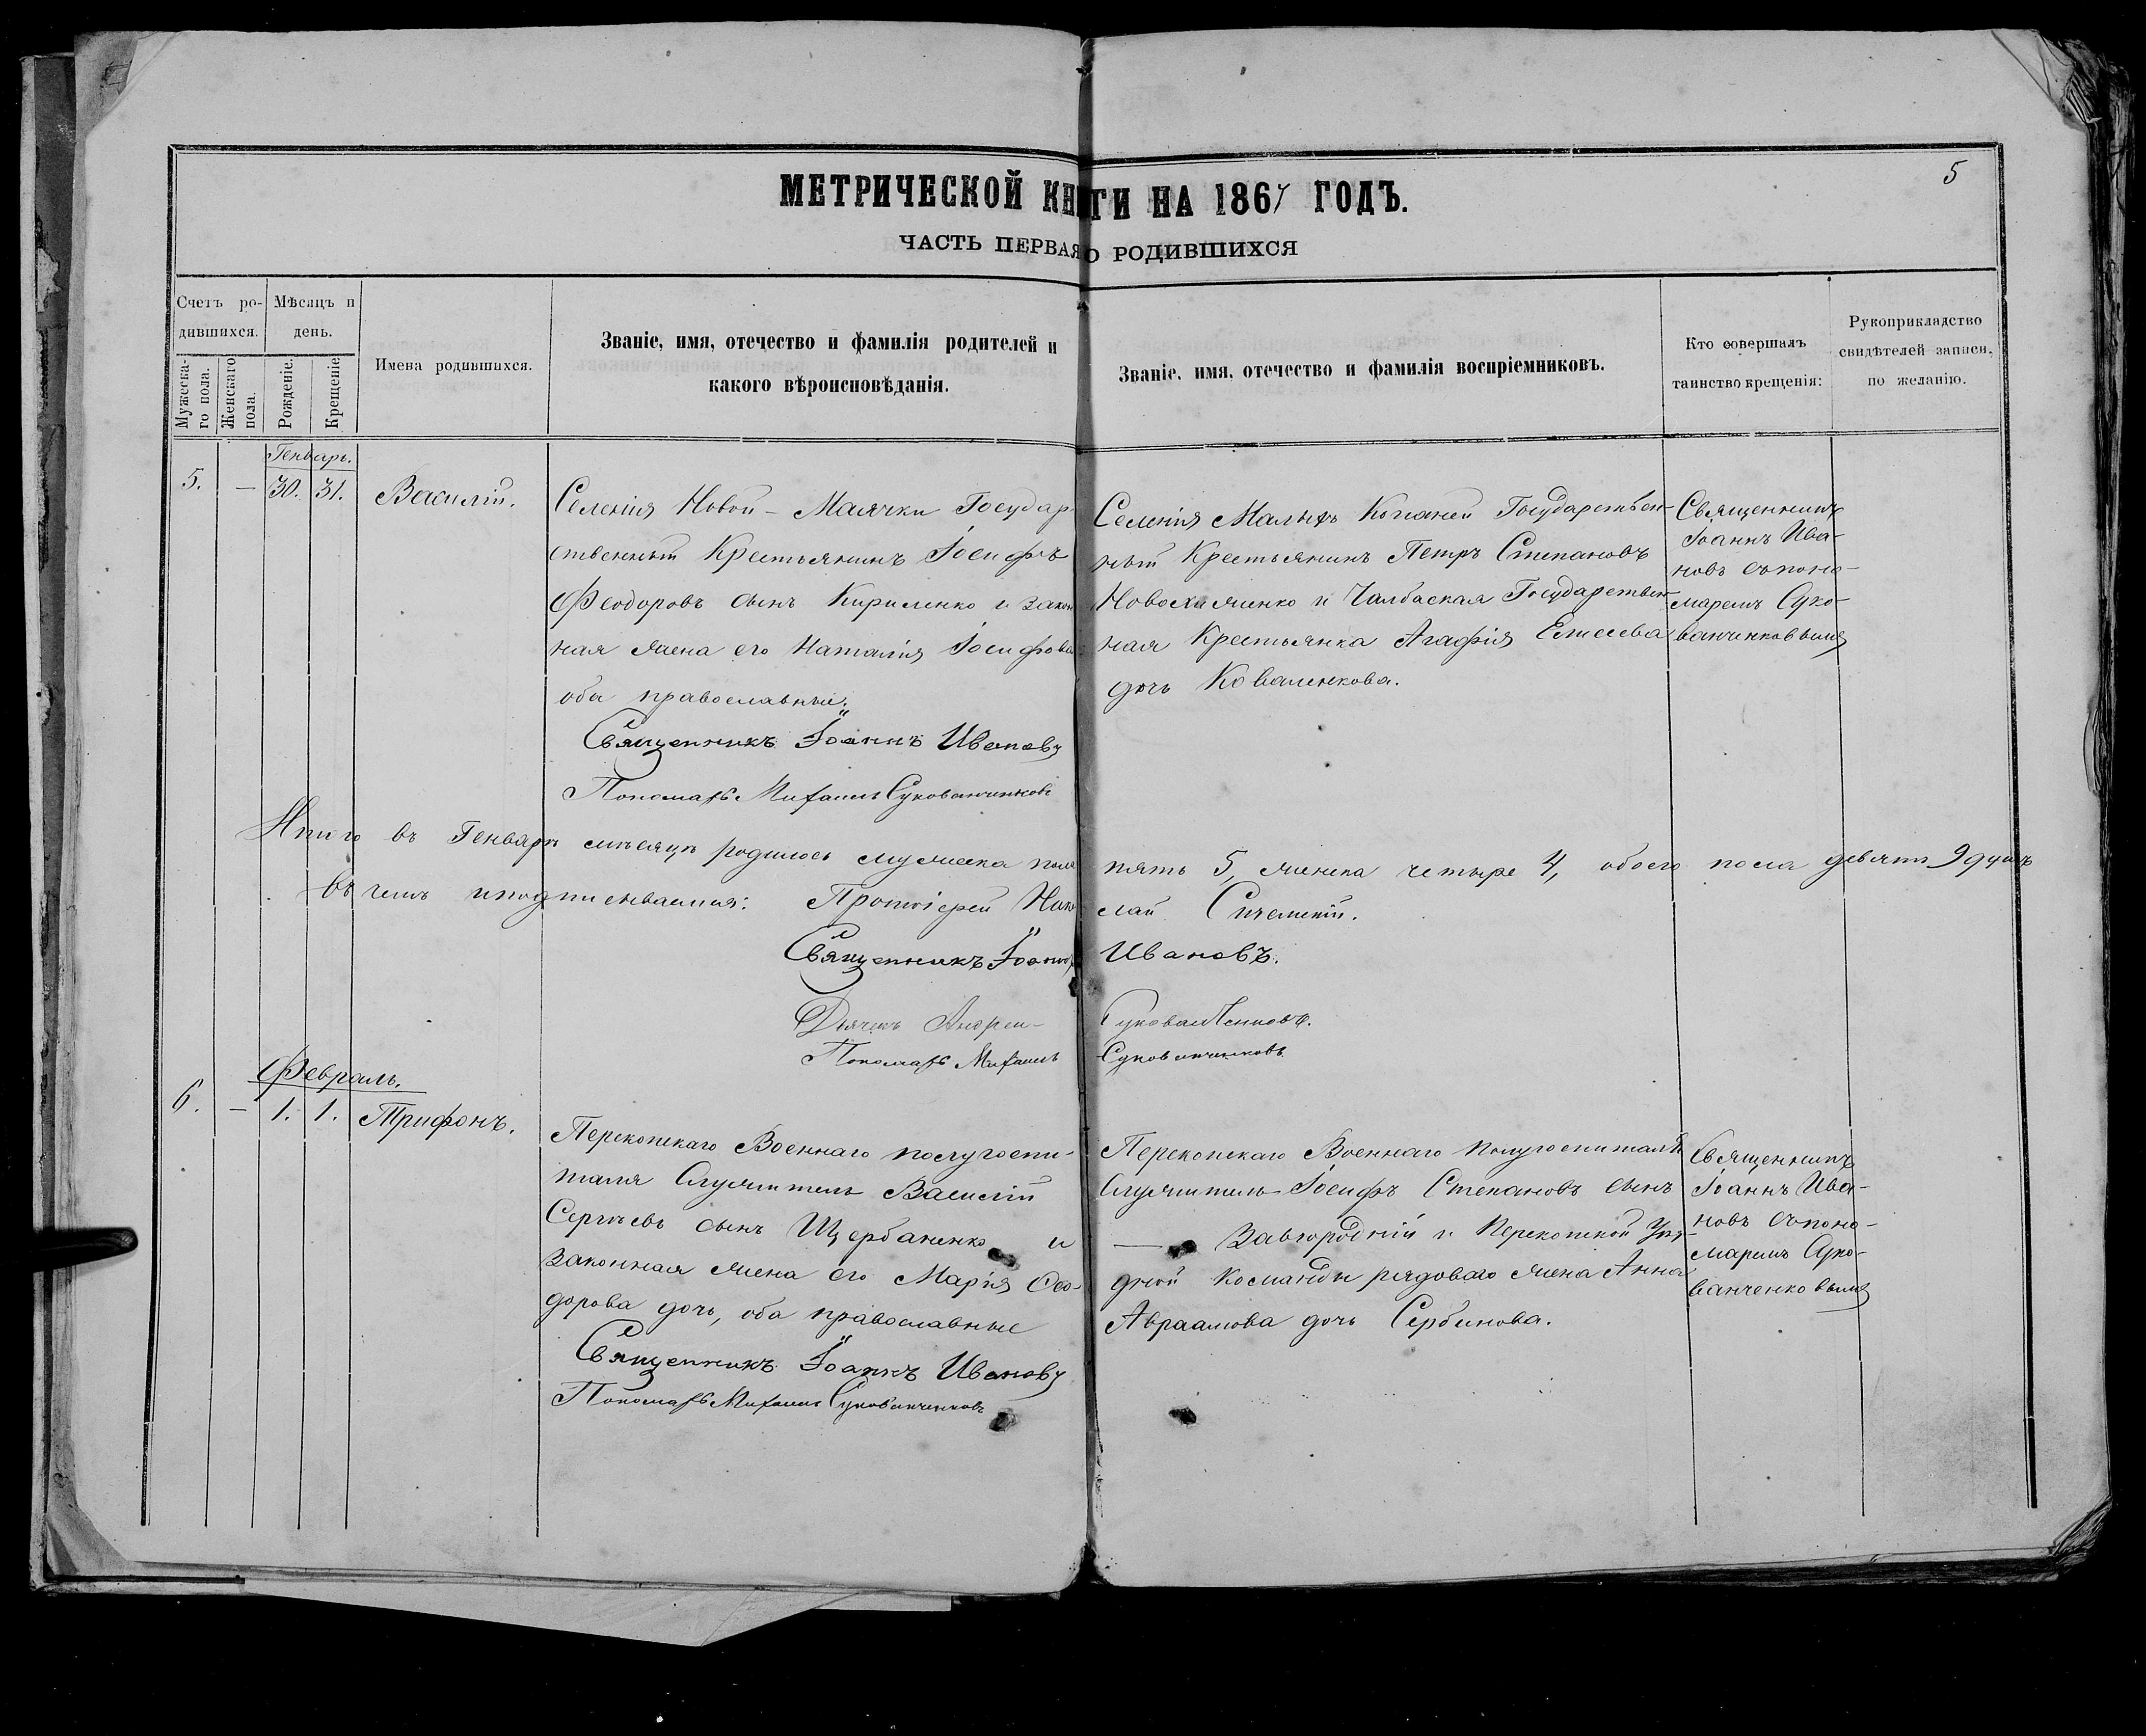 5
МЕТРИЧЕСКОЙ КНИГИ НА 1867 ГОДЪ.
ЧАСТЬ ПЕРВАЯ О РОДИВШИХСЯ
Счетъ ро-
дившихся.
Мужеска-
го пола.
Женскаго
пола.
Мѣсяцъ и
день.
Рожденіе.
Крещеніе
Имена родившихся.
Званіе, имя, отечество и фамилія родителей и
какого вѣроисповѣданія.
Званіе, имя, отечество и фамилія воспріемниковъ.
Кто совершалъ
таинство крещенія:
Рукоприкладство
свидѣтелей записи,
по желанію.
Генварь.
5. — 30. 31. Василій.
Селенія Новой-Маячки Государ-
ственный Крестьянинъ Іосифъ
Феодоровъ сынъ Кириленко и закон
ная жена его Наталія Іосифова
оба православные.
Священникъ Іоаннъ Ивановъ
Пономарь Михаилъ Сукованченковъ
Селенія Малыхъ Копаней Государствен-
ный Крестьянинъ Петръ Степановъ
и Чалбаская Государствен-
ная Крестьянка Агафія Елисеева
дочь Коваленкова.
Священникъ
Іоаннъ Ива-
новъ съ поно-
маремъ Суко-
ванченковымъ
Итого въ Генварѣ мѣсяцѣ родилось мужеска пола пять 5, женска четыре 4, обоего пола девять 9 душъ
въ чемъ и подписываемся: Протоіерей Николай
Священникъ Іоаннъ Ивановъ.
Дьячекъ Андрей Сукованченковъ.
Пономарь Михаилъ Сукованченковъ
Февраль.
6. — 1. 1. Трифонъ.
Перекопскаго Военнаго полугоспи-
таля Служитель Василій
Сергѣевъ сынъ Щербаненко и
законная жена его Марія Ѳео-
дорова дочь, оба православные
Священникъ Іоаннъ Ивановъ
Пономарь Михаилъ Сукованченковъ
Перекопскаго Военнаго полугоспиталя
Служитель Іосифъ Степановъ сынъ
— Завгородній и Перекопской Уѣз-
дной Команды рядоваго жена Анна
Авраамова дочь Сербинова.
Священникъ
Іоаннъ Ива-
новъ съ поно-
маремъ Суко-
ванченковымъ